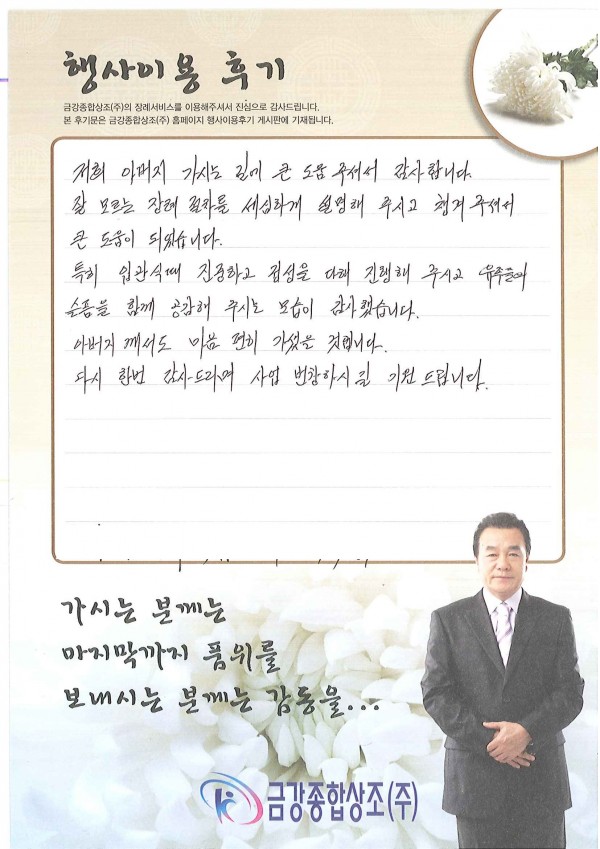 행사이용 후기
금강종합상조(주)의 장례서비스를 이용해주셔서 진심으로 감사드립니다.
본 후기문은 금강종합상조(주) 홈페이지 행사이용후기 게시판에 기재됩니다.
저희 아버지 가시는 길에 큰 도움 주셔서 감사합니다.
잘 모르는 장례 절차를 세심하게 설명해 주시고 챙겨 주셔서
큰 도움이 되었습니다.
특히 입관식때 진중하고 정성을 다해 진행해 주시고 유족들의
슬픔을 함께 공감해 주시는 모습이 감사했습니다.
아버지 께서도 마음 편히 가셨을 것입니다.
다시 한번 감사드리며 사업 번창하시길 기원 드립니다.
가시는 분께는
마지막까지 품위를
보내시는 분께는 감동을...
금강종합상조(주)